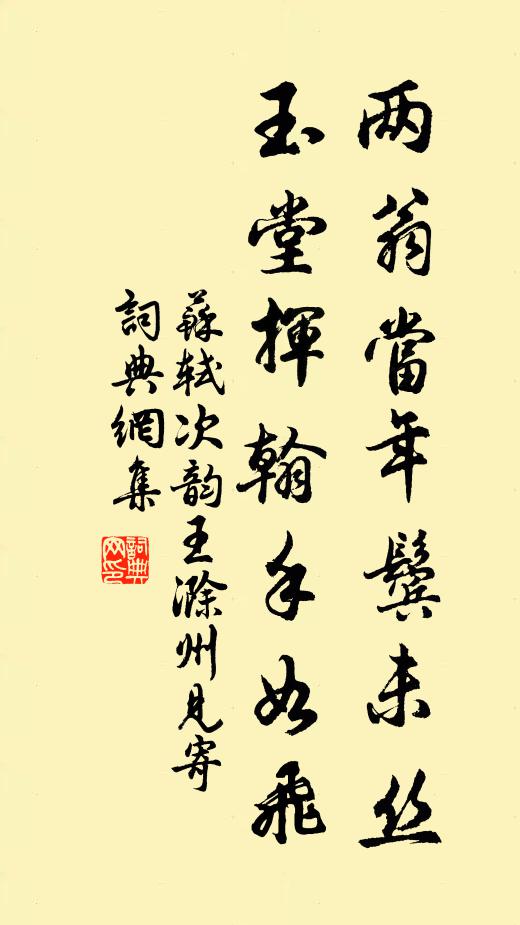 两翁當年鬓未丝
玉堂揮翰手如飛
蘇軾次韵王滁州見寄
詞典網集
詞典网印